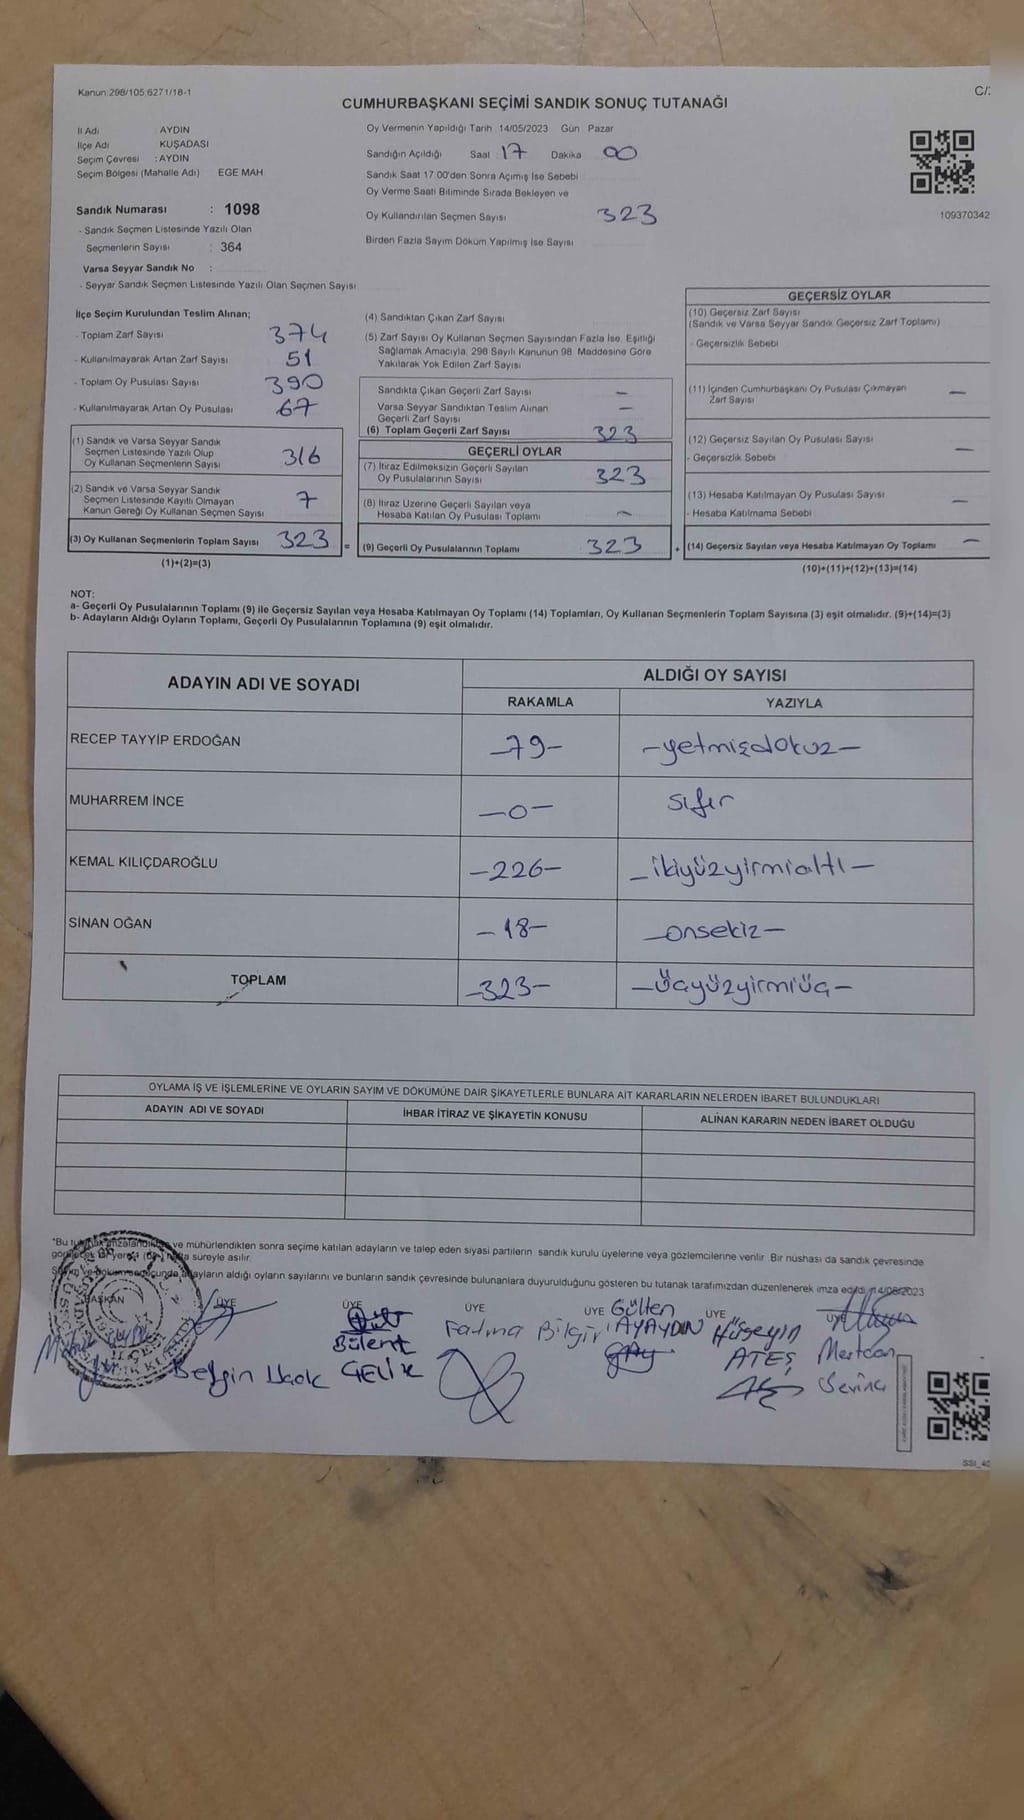 Kanun:298/105;6271/18-1
C/
CUMHURBAŞKANI SEÇİMİ SANDIK SONUÇ TUTANAĞI
İl Adı : AYDIN
İlçe Adı : KUŞADASI
Seçim Çevresi : AYDIN
Seçim Bölgesi (Mahalle Adı) EGE MAH
Sandık Numarası : 1098
- Sandık Seçmen Listesinde Yazılı Olan
Seçmenlerin Sayısı : 364
Varsa Seyyar Sandık No :
- Seyyar Sandık Seçmen Listesinde Yazılı Olan Seçmen Sayısı
Oy Vermenin Yapıldığı Tarih :14/05/2023 Gün : Pazar
Sandığın Açıldığı Saat :17 Dakika 00
Sandık Saat 17:00'den Sonra Açılmış İse Sebebi
Oy Verme Saati Bitiminde Sırada Bekleyen ve
Oy Kullandırılan Seçmen Sayısı 323
Birden Fazla Sayım Döküm Yapılmış İse Sayısı
109370342
İlçe Seçim Kurulundan Teslim Alınan;
- Toplam Zarf Sayısı 374
- Kullanılmayarak Artan Zarf Sayısı 51
- Toplam Oy Pusulası Sayısı 390
- Kullanılmayarak Artan Oy Pusulası 67
(1) Sandık ve Varsa Seyyar Sandık
Seçmen Listesinde Yazılı Olup
Oy Kullanan Seçmenlerin Sayısı 316
(2) Sandık ve Varsa Seyyar Sandık
Seçmen Listesinde Kayıtlı Olmayan
Kanun Gereği Oy Kullanan Seçmen Sayısı 7
(3) Oy Kullanan Seçmenlerin Toplam Sayısı 323 =
(1)+(2)=(3)
(4) Sandıktan Çıkan Zarf Sayısı
(5) Zarf Sayısı Oy Kullanan Seçmen Sayısından Fazla İse, Eşitliği
Sağlamak Amacıyla, 298 Sayılı Kanunun 98. Maddesine Göre
Yakılarak Yok Edilen Zarf Sayısı
Sandıkta Çıkan Geçerli Zarf Sayısı –
Varsa Seyyar Sandıktan Teslim Alınan
Geçerli Zarf Sayısı –
(6) Toplam Geçerli Zarf Sayısı 323
GEÇERLİ OYLAR
(7) İtiraz Edilmeksizin Geçerli Sayılan
Oy Pusulalarının Sayısı 323
(8) İtiraz Üzerine Geçerli Sayılan veya
Hesaba Katılan Oy Pusulası Toplamı –
(9) Geçerli Oy Pusulalarının Toplamı 323 +
GEÇERSİZ OYLAR
(10) Geçersiz Zarf Sayısı
(Sandık ve Varsa Seyyar Sandık Geçersiz Zarf Toplamı)
- Geçersizlik Sebebi
(11) İçinden Cumhurbaşkanı Oy Pusulası Çıkmayan
Zarf Sayısı –
(12) Geçersiz Sayılan Oy Pusulası Sayısı –
- Geçersizlik Sebebi
(13) Hesaba Katılmayan Oy Pusulası Sayısı –
- Hesaba Katılmama Sebebi
(14) Geçersiz Sayılan veya Hesaba Katılmayan Oy Toplamı –
(10)+(11)+(12)+(13)=(14)
NOT:
a- Geçerli Oy Pusulalarının Toplamı (9) ile Geçersiz Sayılan veya Hesaba Katılmayan Oy Toplamı (14) Toplamları, Oy Kullanan Seçmenlerin Toplam Sayısına (3) eşit olmalıdır. (9)+(14)=(3)
b- Adayların Aldığı Oyların Toplamı, Geçerli Oy Pusulalarının Toplamına (9) eşit olmalıdır.
ADAYIN ADI VE SOYADI ALDIĞI OY SAYISI
RAKAMLA YAZIYLA
RECEP TAYYİP ERDOĞAN –79– –yetmişdokuz–
MUHARREM İNCE –0– sıfır
KEMAL KILIÇDAROĞLU –226– –ikiyüzyirmialtı–
SİNAN OĞAN –18– –onsekiz–
TOPLAM –323– –üçyüzyirmiüç–
OYLAMA İŞ VE İŞLEMLERİNE VE OYLARIN SAYIM VE DÖKÜMÜNE DAİR ŞİKAYETLERLE BUNLARA AİT KARARLARIN NELERDEN İBARET BULUNDUKLARI
ADAYIN ADI VE SOYADI İHBAR İTİRAZ VE ŞİKAYETİN KONUSU ALINAN KARARIN NEDEN İBARET OLDUĞU
*Bu ve mühürlendikten sonra seçime katılan adayların ve talep eden siyasi partilerin sandık kurulu üyelerine veya gözlemcilerine verilir. Bir nüshası da sandık çevresinde
süreyle asılır.
adayların aldığı oyların sayılarını ve bunların sandık çevresinde bulunanlara duyurulduğunu gösteren bu tutanak tarafımızdan düzenlenerek imza edildi.
BAŞKAN ÜYE ÜYE ÜYE ÜYE ÜYE
Bülent ÇELİK
Fatma Bilgir
Gülten AYAYDIN
Hüseyin ATEŞ
Mertcan Sevinç